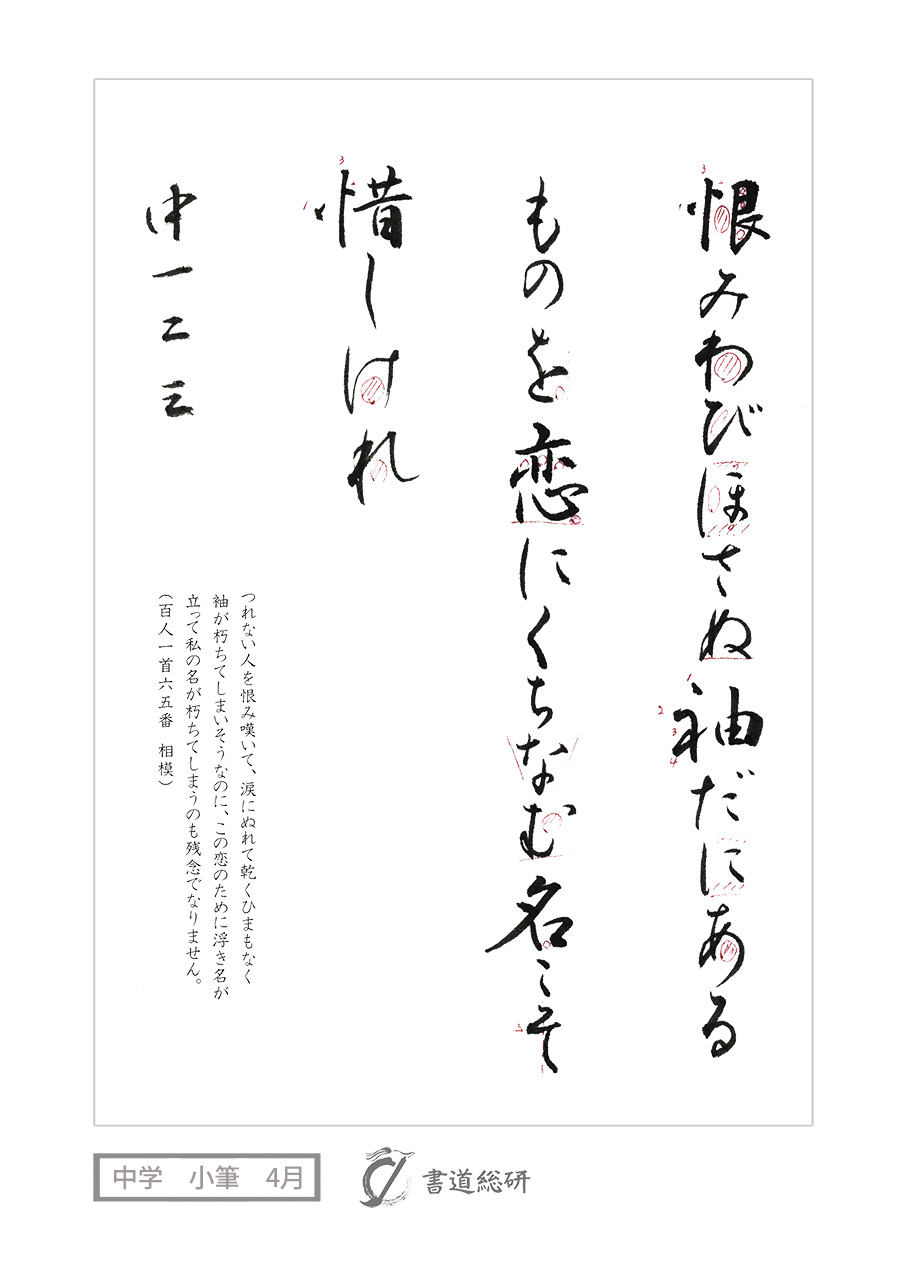 恨みわびほさぬ袖だにある
ものを恋にくちなむ名こそ
惜しけれ
中一二三
つれない人を恨み嘆いて、涙にぬれて乾くひまもなく
袖が朽ちてしまいそうなのに、この恋のために浮き名が
立って私の名が朽ちてしまうのも残念でなりません。
（百人一首六五番 相模）
中学 小筆 4月
書道総研